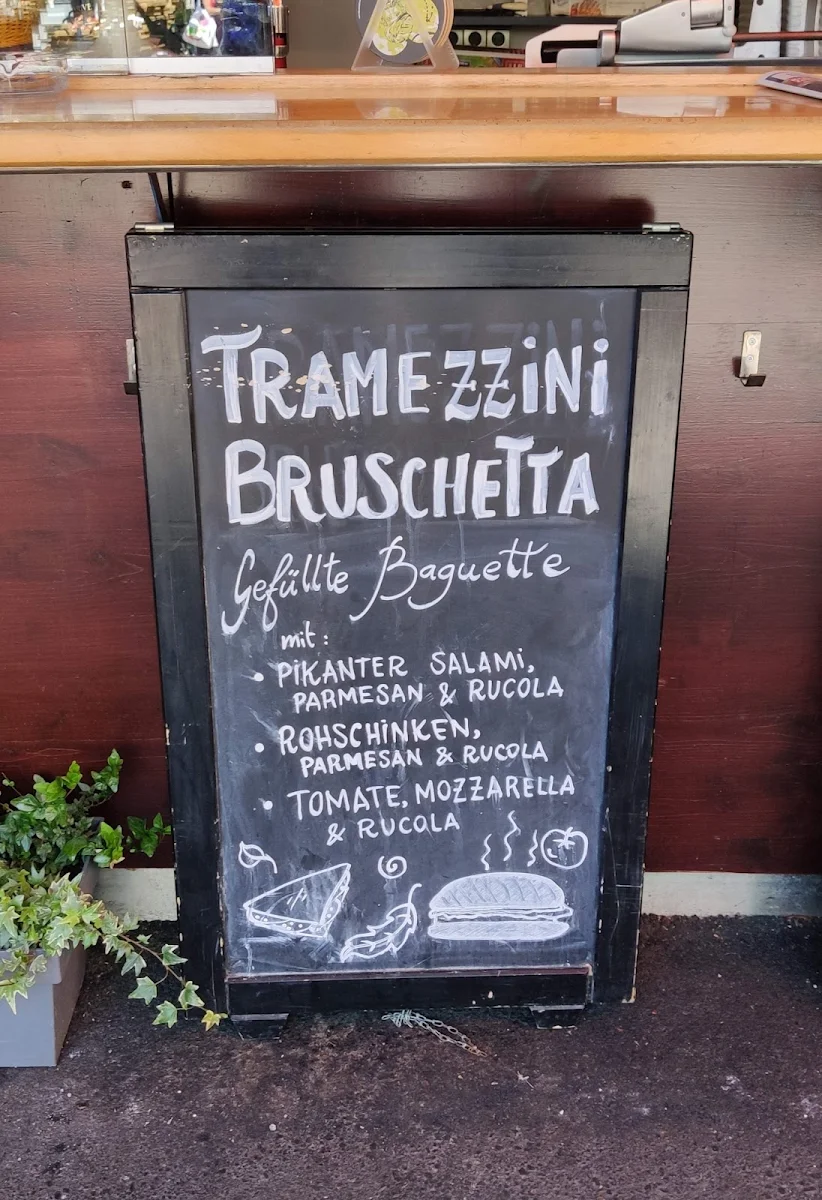 TRAMEZZiNi
BRUSCHETTA
Gefüllte Baguette
mit:
• PiKANTER SALAMi,
PARMESAN & RUCOLA
• ROHSCHiNKEN,
PARMESAN & RUCOLA
• TOMATE, MOZZARELLA
& RUCOLA